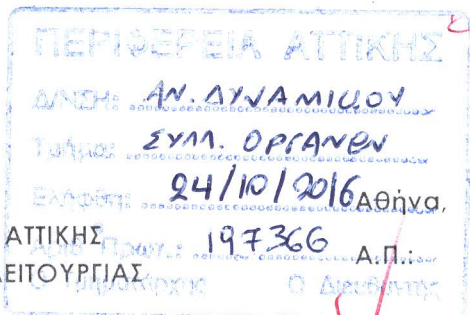 ΠΕΡΙΦΕΡΕΙΑ ΑΤΤΙΚΗΣ
Δ/ΝΣΗ: ΑΝ. ΔΥΝΑΜΙΚΟΥ
Τμήμα: ΣΥΛΛ. ΟΡΓΑΝΩΝ
Ελήφθη: 24/10/2016 Αθήνα,
ΑΤΤΙΚΗΣ Πρωτ.: 197366 Α.Π.:
ΛΕΙΤΟΥΡΓΙΑΣ
Ο Τμηματάρχης Ο Διευθυντής